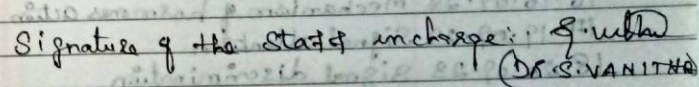 Signature of the Staff incharge:
(DR.S.VANITHA)